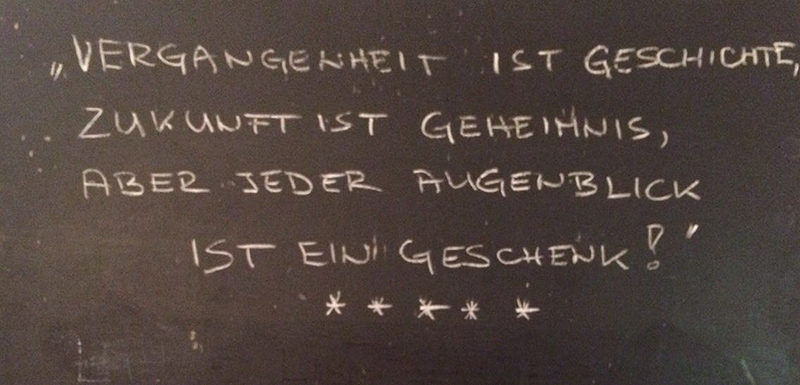 „VERGANGENHEIT IST GESCHICHTE,
ZUKUNFT IST GEHEIMNIS,
ABER JEDER AUGENBLICK
IST EIN GESCHENK!"
* * * * *